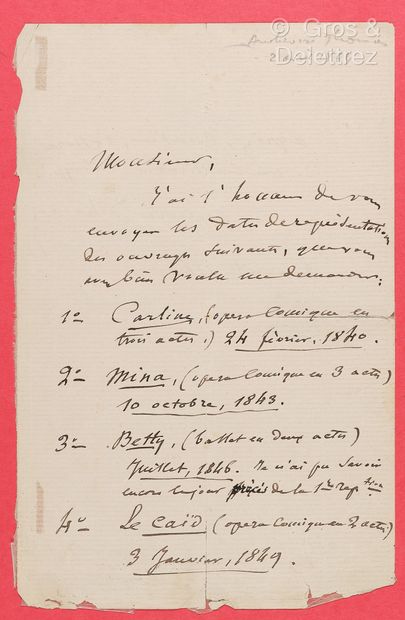 © Gros &
Delettrez
Monsieur,
J'ai l'honneur de vous
envoyer les dates de représentation
des ouvrages suivants, que vous
avez bien voulu me demander:
1º Carline, (opéra comique en
trois actes,) 24 février, 1840.
2º Mina, (opéra comique en 3 actes)
10 octobre, 1843.
3º Betty, (ballet en deux actes)
Juillet, 1846. Je n'ai pu savoir
encore le jour précis de la 1ère représtion.
4º Le caïd (opéra comique en 2 actes)
3 Janvier, 1849.